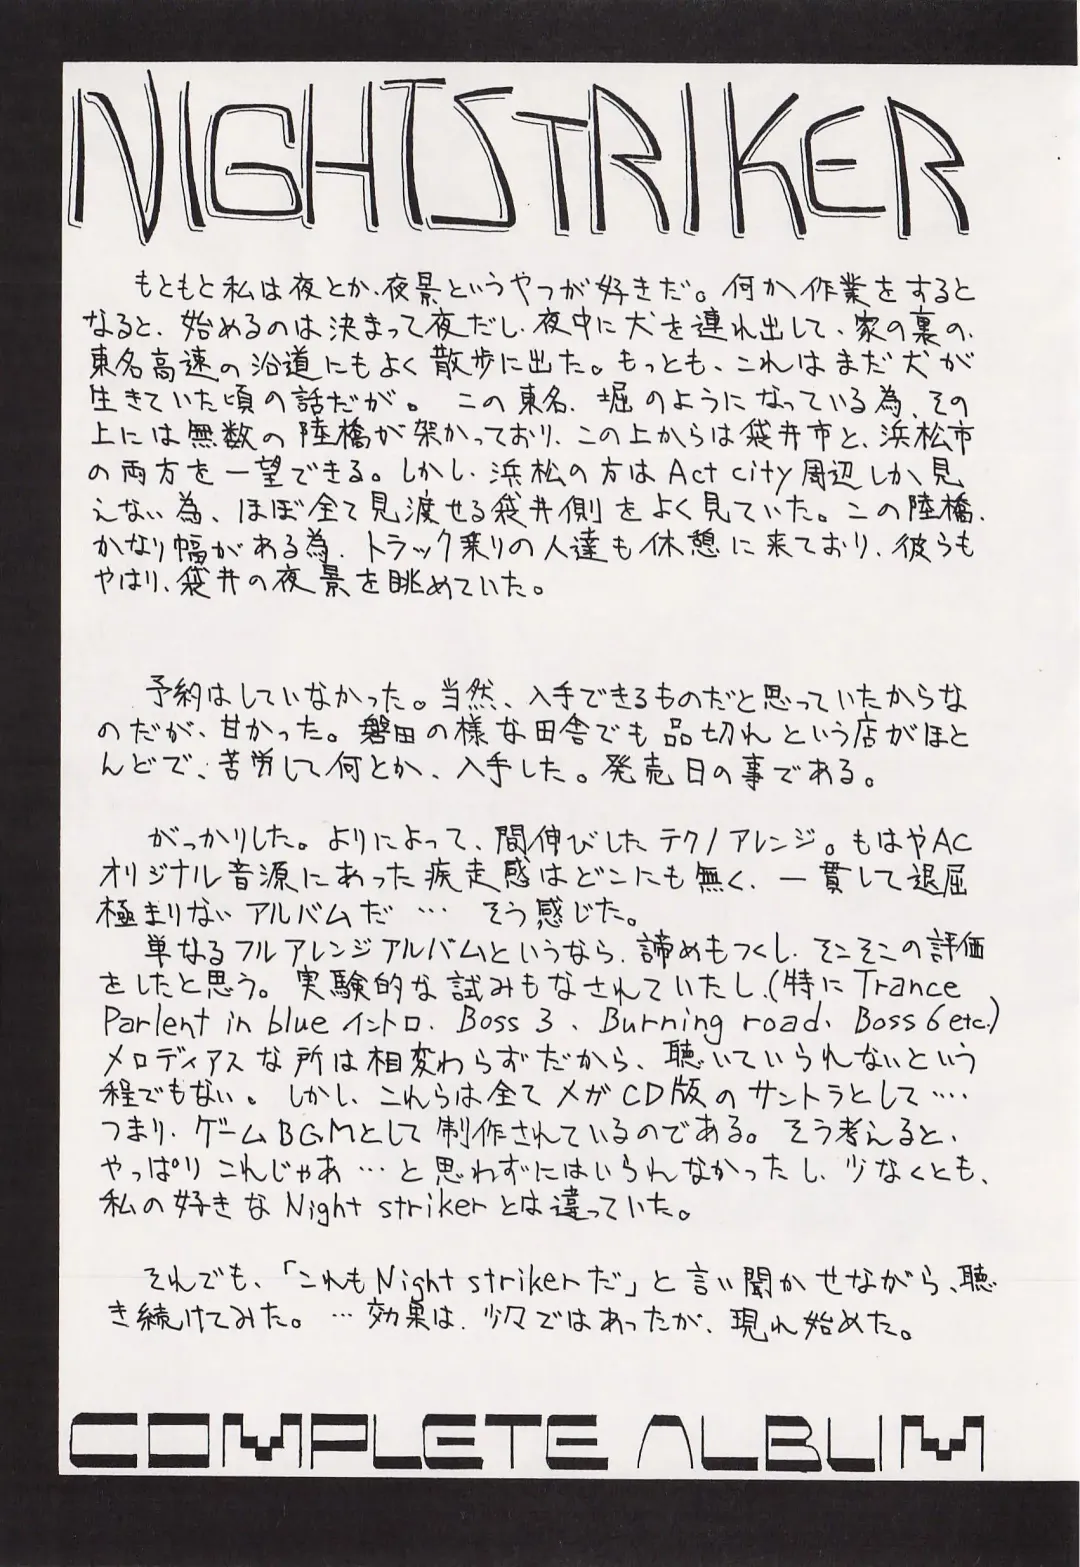 NIGHTSTRIKER
もともと私は夜とか、夜景というやつが好きだ。何か作業をすると
なると、始めるのは決まって夜だし、夜中に犬を連れ出して、家の裏の、
東名高速の沿道にもよく散歩に出た。もっとも、これはまだ犬が
生きていた頃の話だが。 この東名、堀のようになっている為、その
上には無数の陸橋が架かっており、この上からは袋井市と、浜松市
の両方を一望できる。しかし、浜松の方はAct city周辺しか見
えない為、ほぼ全て見渡せる袋井側をよく見ていた。この陸橋、
かなり幅がある為、トラック乗りの人達も休憩に来ており、彼らも
やはり、袋井の夜景を眺めていた。
予約はしていなかった。当然、入手できるものだと思っていたからな
のだが、甘かった。磐田の様な田舎でも品切れという店がほと
んどで、苦労して何とか、入手した。発売日の事である。
がっかりした。よりによって、間伸びしたテクノアレンジ。もはやAC
オリジナル音源にあった疾走感はどこにも無く、一貫して退屈
極まりないアルバムだ… そう感じた。
単なるフルアレンジアルバムというなら、諦めもつくし、そこそこの評価
をしたと思う。実験的な試みもなされていたし、(特にTrance
Parlent in blue イントロ、Boss 3、Burning road、Boss 6 etc.)
メロディアスな所は相変わらずだから、聴いていられないという
程でもない。しかし、これらは全てメガCD版のサントラとして‥‥
つまり、ゲームBGMとして制作されているのである。そう考えると、
やっぱりこれじゃあ…と思わずにはいられなかったし、少なくとも、
私の好きなNight strikerとは違っていた。
それでも、「これもNight strikerだ」と言い聞かせながら、聴
き続けてみた。…効果は、少々ではあったが、現れ始めた。
COMPLETE ALBUM